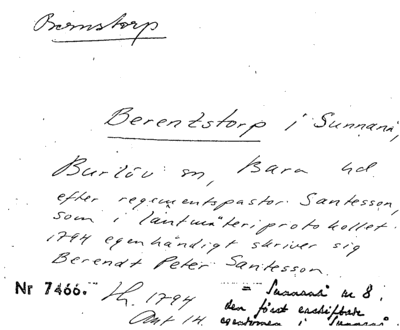 Bernstorp
Berentstorp i Sunnanå,
Burlöv sn, Bara hd.
efter regementspastor Santesson,
som i lantmäteriprotokollet
1794 egenhändigt skriver sig
Berendt Peter Santesson.
Nr 7466.
1794
= Sunnanå nr 8,
den först enskiftade
egendomen i Sunnanå